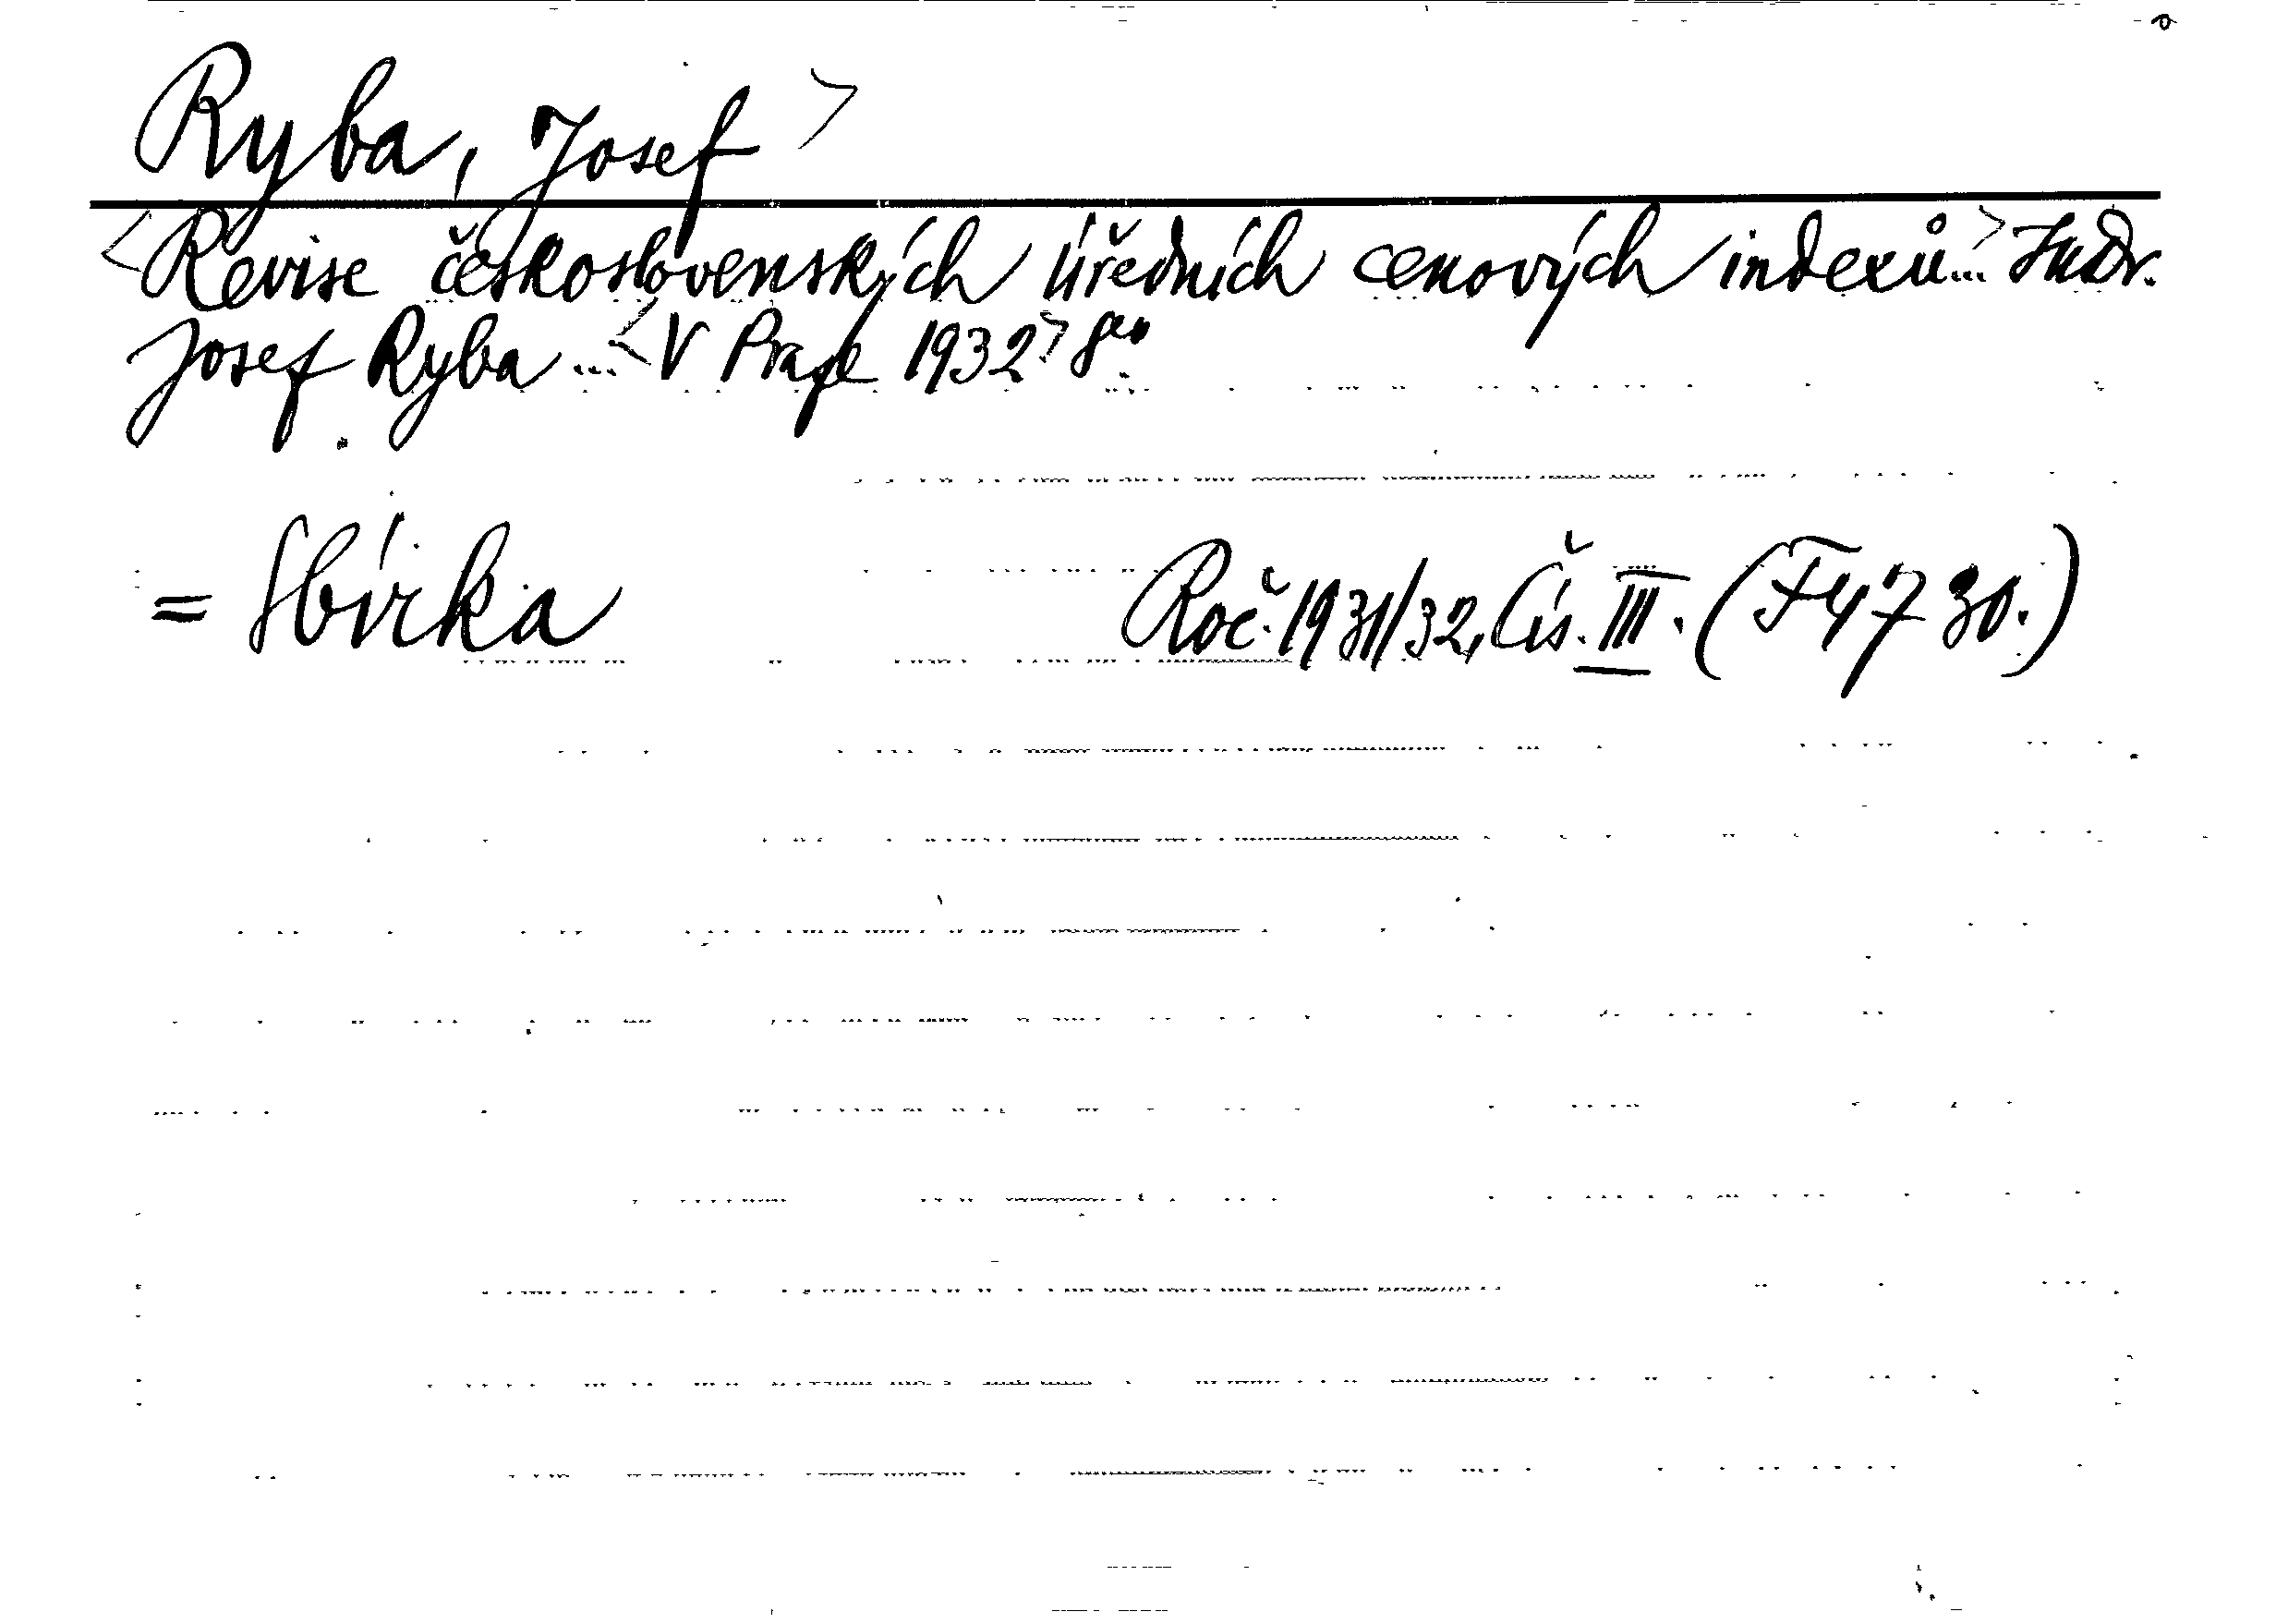 Ryba, Josef >
<Revise československých úředních cenových indexů...> JuDr.
Josef Ryba ... <V Praze 1932> 8°.
= Sbírka Roč. 1931/32, Čís. III. (F 4730.)